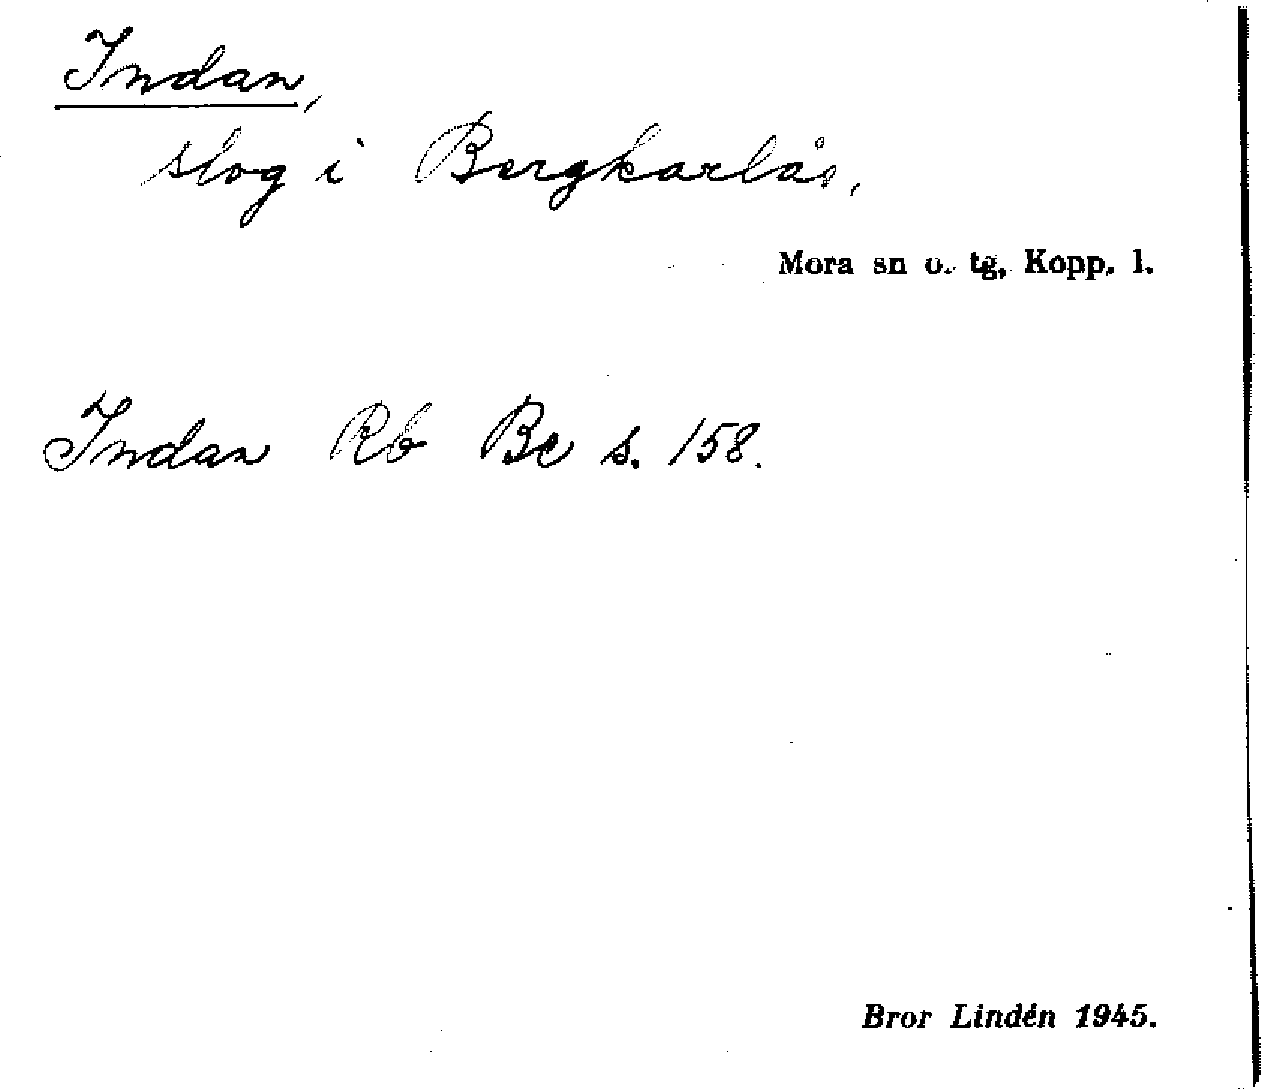 Indan,
slog i Bergkarlås,
Mora sn o. tg, Kopp. l.
Indan Rb Be s. 158.
Bror Lindén 1945.